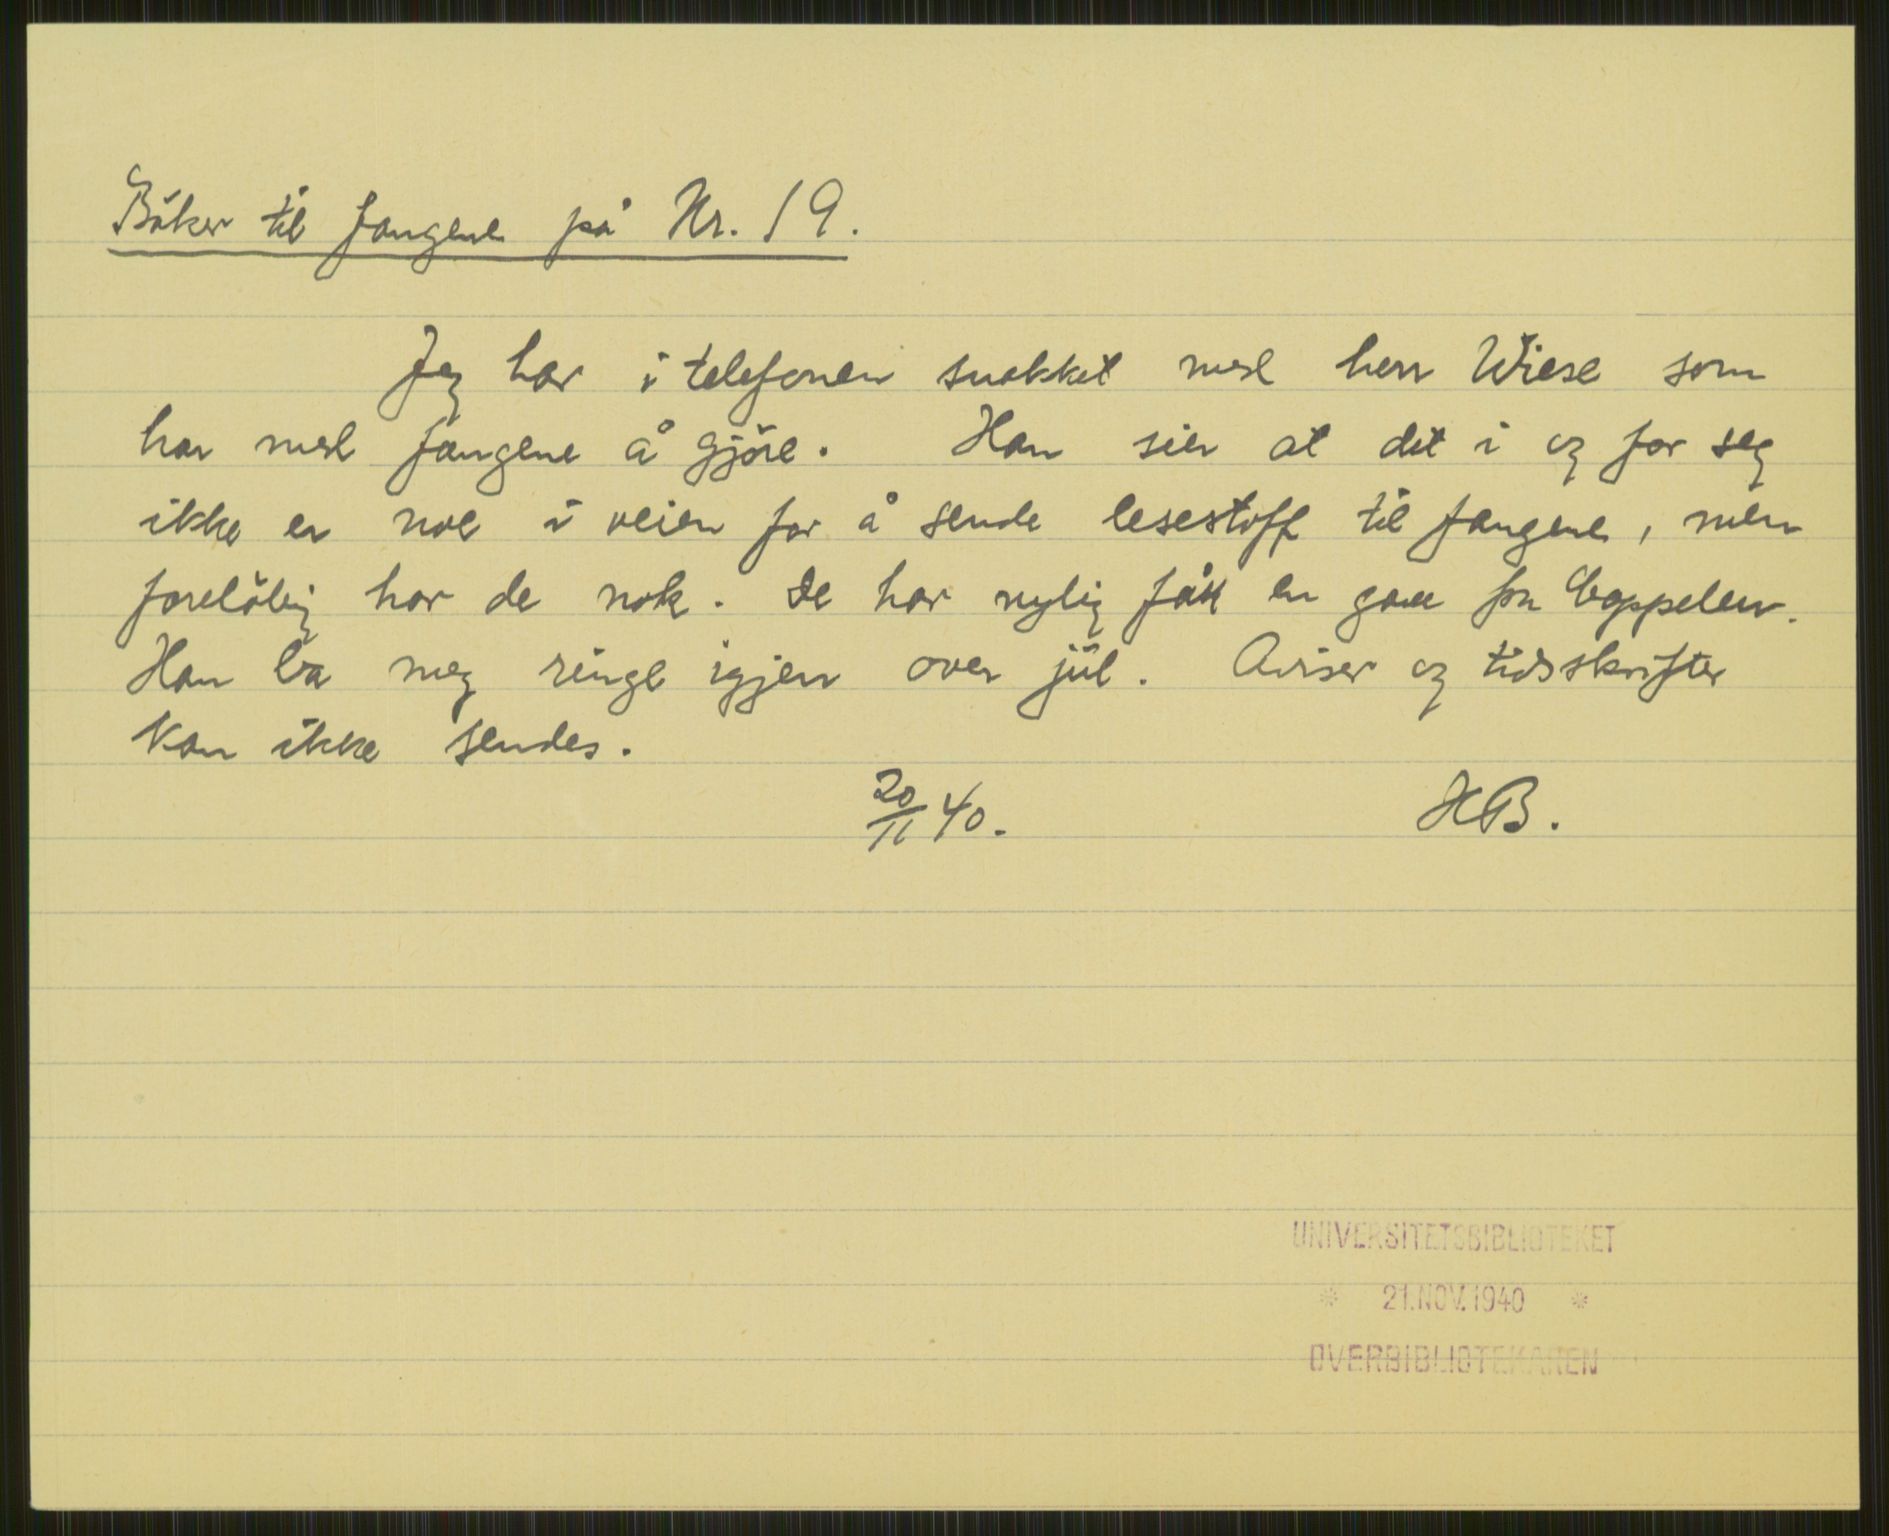 Böker til fangene på Nr. 19.
Jeg har i telefonen snakket med herr Wiese som
har med fangene å gjöre. Han sier at det i og for seg
ikke er noe i veien for å sende lesestoff til fangene, men
forelöbig har de nok. De har nylig fått en gave fra Cappelen.
Han ba meg ringe igjen over jul. Aviser og tidsskrifter
kan ikke sendes.
20/11 40. HB.
UNIVERSITETSBIBLIOTEKET
* 21.NOV.1940 *
OVERBIBLIOTEKAREN